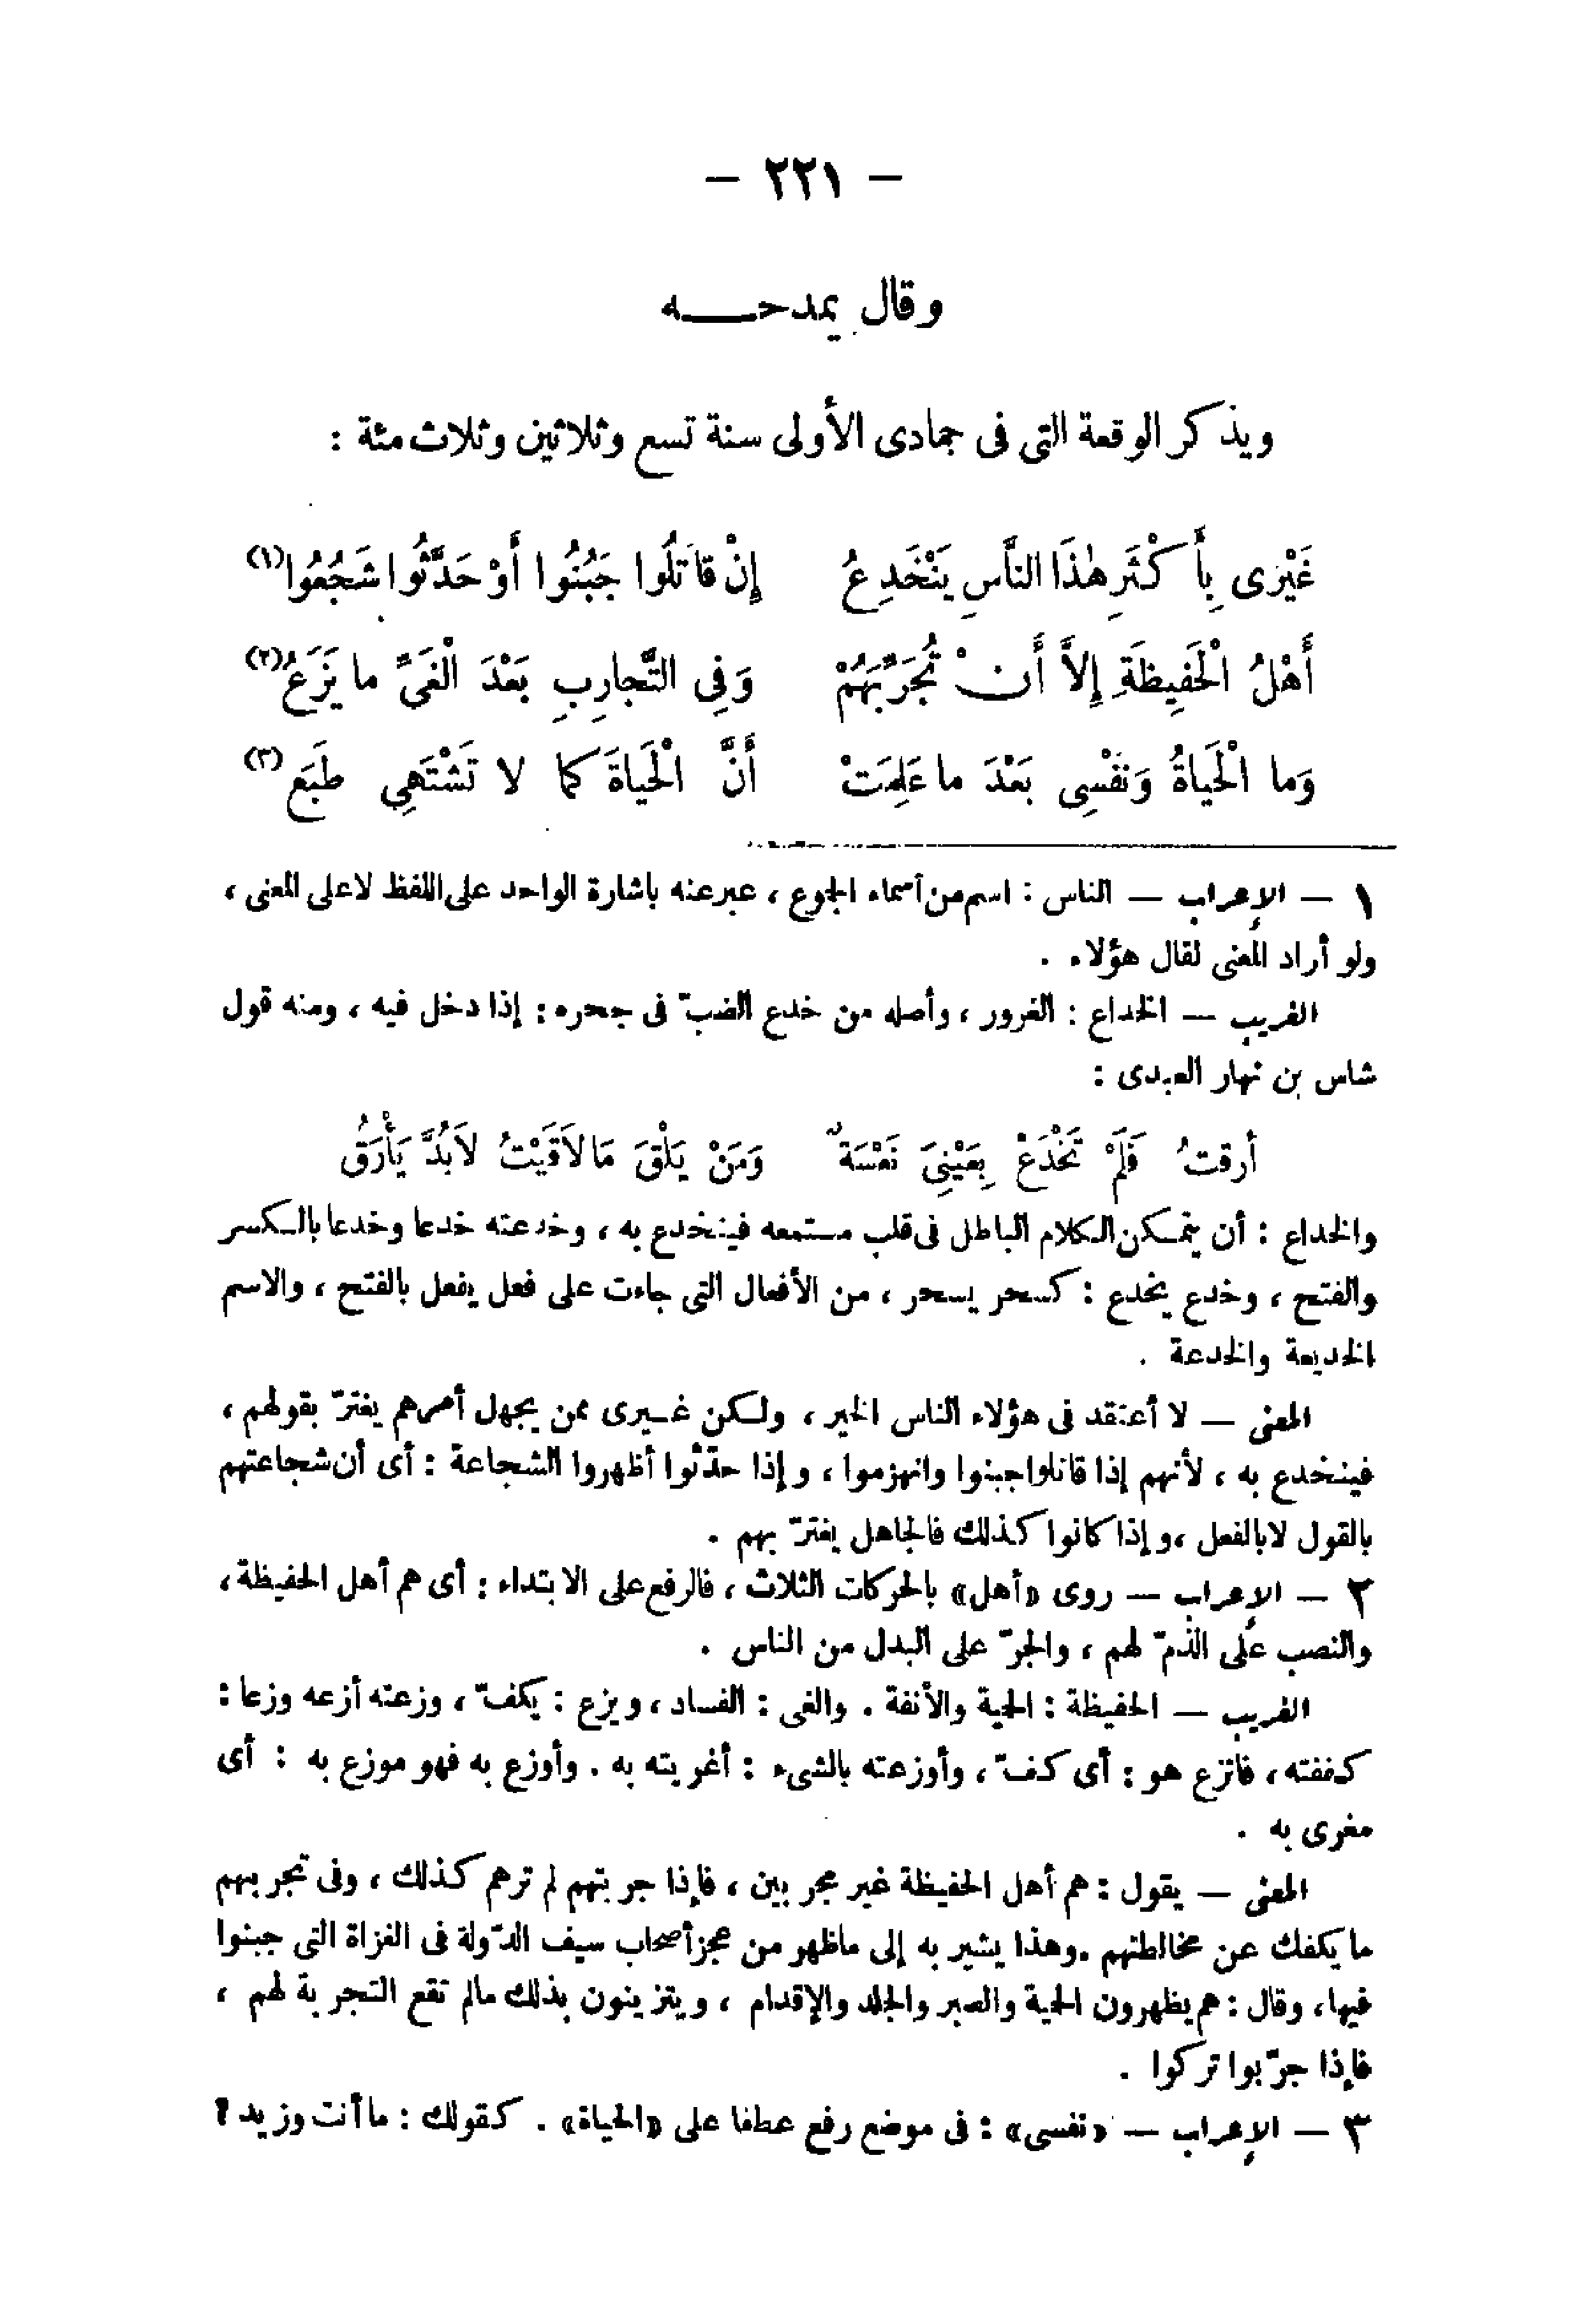 — ٢٢١ —
وقال يمدحـــه
ويذكر الوقعة التى فى جمادى الأولى سنة تسع وثلاثين وثلاث مئة :
غَيْرِى بِأَكْثَرِ هٰذَا النَّاسِ يَنْخَدِعُ إِنْ قاتَلُوا جَبُنُوا أَوْ حَدَّثُوا شَجُعُوا(١)
أَهْلُ الْحَفِيظَةِ إِلاَّ أَنْ تُجَرِّبَهُمْ وَفِى التَّجارِبِ بَعْدَ الْغَىِّ ما يَزَعُ(٢)
وَما الْحَياةُ وَنَفْسِى بَعْدَ ما عَلِمَتْ أَنَّ الْحَياةَ كما لا تَشْتَهِى طَبَع(٣)
١ — الإعراب — الناس : اسم من أسماء الجموع ، عبر عنه باشارة الواحد على اللفظ لا على المعنى ،
ولو أراد المعنى لقال هؤلاء .
الغريب — الخداع : الغرور ، وأصله من خدع الضبّ فى جحره : إذا دخل فيه ، ومنه قول
شاس بن نهار العبدى :
أرقتُ فَلَمْ تَخْدَعْ بِعَيْنِىَ نَعْسَةٌ وَمَنْ يَلْقَ مَا لاَقَيْتُ لاَبُدَّ يَأْرَقُ
والخداع : أن يتمـكن الـكلام الباطل فى قلب مستمعه فينخدع به ، وخدعته خدعا وخدعا بالـكسر
والفتح ، وخدع يخدع : كسحر يسحر ، من الأفعال التى جاءت على فعل يفعل بالفتح ، والاسم
الخديعة والخدعة .
المعنى — لا أعتقد فى هؤلاء الناس الخير ، ولـكن غـيرى ممن يجهل أمرهم يغترّ بقولهم ،
فينخدع به ، لأنهم إذا قاتلوا جبنوا وانهزموا ، وإذا حدّثوا أظهروا الشجاعة : أى أن شجاعتهم
بالقول لا بالفعل ، وإذا كانوا كذلك فالجاهل يغترّ بهم .
٢ — الإعراب — روى «أهل» بالحركات الثلاث ، فالرفع على الابتداء : أى هم أهل الحفيظة ،
والنصب على الذمّ لهم ، والجرّ على البدل من الناس .
الغريب — الحفيظة : الحمية والأنفة . والغى : الفساد ، ويزع : يكفّ ، وزعته أزعه وزعا :
كففته ، فاتزع هو : أى كفّ ، وأوزعته بالشىء : أغريته به . وأوزع به فهو موزع به : أى
مغرى به .
المعنى — يقول : هم أهل الحفيظة غير مجربين ، فإذا جربتهم لم ترهم كذلك ، وفى تجربهم
ما يكفك عن مخالطتهم . وهذا يشير به إلى ماظهر من عجز أصحاب سيف الدّولة فى الغزاة التى جبنوا
فيها ، وقال : هم يظهرون الحمية والصبر والجلد والإقدام ، ويتزينون بذلك مالم تقع التجربة لهم ،
فإذا جرّبوا تركوا .
٣ — الإعراب — «نفسى» : فى موضع رفع عطفا على «الحياة» . كقولك : ما أنت وزيد ؟